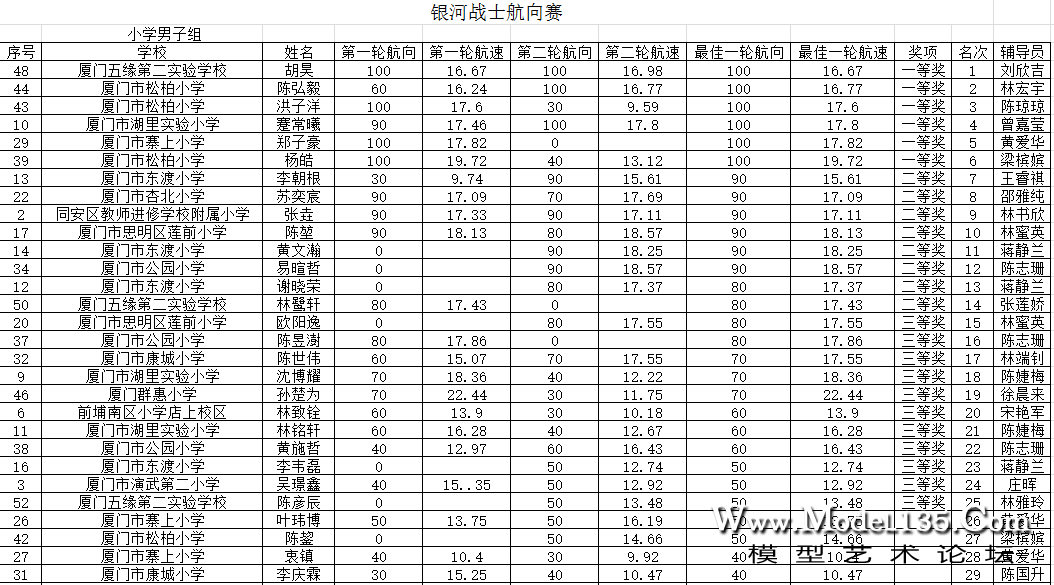 银河战士航向赛
小学男子组
序号 学校 姓名 第一轮航向 第一轮航速 第二轮航向 第二轮航速 最佳一轮航向 最佳一轮航速 奖项 名次 辅导员
48 厦门五缘第二实验学校 胡昊 100 16.67 100 16.98 100 16.67 一等奖 1 刘欣吉
44 厦门市松柏小学 陈弘毅 60 16.24 100 16.77 100 16.77 一等奖 2 林宏宇
43 厦门市松柏小学 洪子洋 100 17.6 30 9.59 100 17.6 一等奖 3 陈琼琼
10 厦门市湖里实验小学 蹇常曦 90 17.46 100 17.8 100 17.8 一等奖 4 曾嘉莹
29 厦门市寨上小学 郑子豪 100 17.82 0 100 17.82 一等奖 5 黄爱华
39 厦门市松柏小学 杨皓 100 19.72 40 13.12 100 19.72 一等奖 6 梁槟嫔
13 厦门市东渡小学 李朝根 30 9.74 90 15.61 90 15.61 二等奖 7 王睿祺
22 厦门市杏北小学 苏奕宸 90 17.09 70 17.69 90 17.09 二等奖 8 邵雅纯
2 同安区教师进修学校附属小学 张垚 90 17.33 90 17.11 90 17.11 二等奖 9 林书欣
17 厦门市思明区莲前小学 陈堃 90 18.13 80 18.57 90 18.13 二等奖 10 林蜜英
14 厦门市东渡小学 黄文瀚 0 90 18.25 90 18.25 二等奖 11 蒋静兰
34 厦门市公园小学 易暄哲 0 90 18.57 90 18.57 二等奖 12 陈志珊
12 厦门市东渡小学 谢晓荣 0 80 17.37 80 17.37 二等奖 13 蒋静兰
50 厦门五缘第二实验学校 林鹭轩 80 17.43 0 80 17.43 二等奖 14 张莲娇
20 厦门市思明区莲前小学 欧阳逸 0 80 17.55 80 17.55 三等奖 15 林蜜英
37 厦门市公园小学 陈昱澍 80 17.86 0 80 17.86 三等奖 16 陈志珊
32 厦门市康城小学 陈世伟 60 15.07 70 17.55 70 17.55 三等奖 17 林端钊
9 厦门市湖里实验小学 沈博耀 70 18.36 40 12.22 70 18.36 三等奖 18 陈婕梅
46 厦门群惠小学 孙楚为 70 22.44 30 11.75 70 22.44 三等奖 19 徐晨来
6 前埔南区小学店上校区 林致铨 60 13.9 30 10.18 60 13.9 三等奖 20 宋艳军
11 厦门市湖里实验小学 林铭轩 60 16.28 40 12.67 60 16.28 三等奖 21 陈婕梅
38 厦门市公园小学 黄施哲 40 12.97 60 16.43 60 16.43 三等奖 22 陈志珊
16 厦门市东渡小学 李韦磊 0 50 12.74 50 12.74 三等奖 23 蒋静兰
3 厦门市演武第二小学 吴璟鑫 40 15..35 50 12.92 50 12.92 三等奖 24 庄晖
52 厦门五缘第二实验学校 陈彦辰 0 50 13.48 50 13.48 三等奖 25 林雅玲
26 厦门市寨上小学 叶玮博 50 13.75 50 16.19 26 黄爱华
42 厦门市松柏小学 陈鋆 0 50 14.66 50 14.66 27 梁槟嫔
27 厦门市寨上小学 衷镇 40 10.4 30 9.92 40 28 黄爱华
31 厦门市康城小学 李庆霖 30 15.25 40 10.47 40 10.47 29 陈国升
Www.Model135.Com
模型艺术论坛